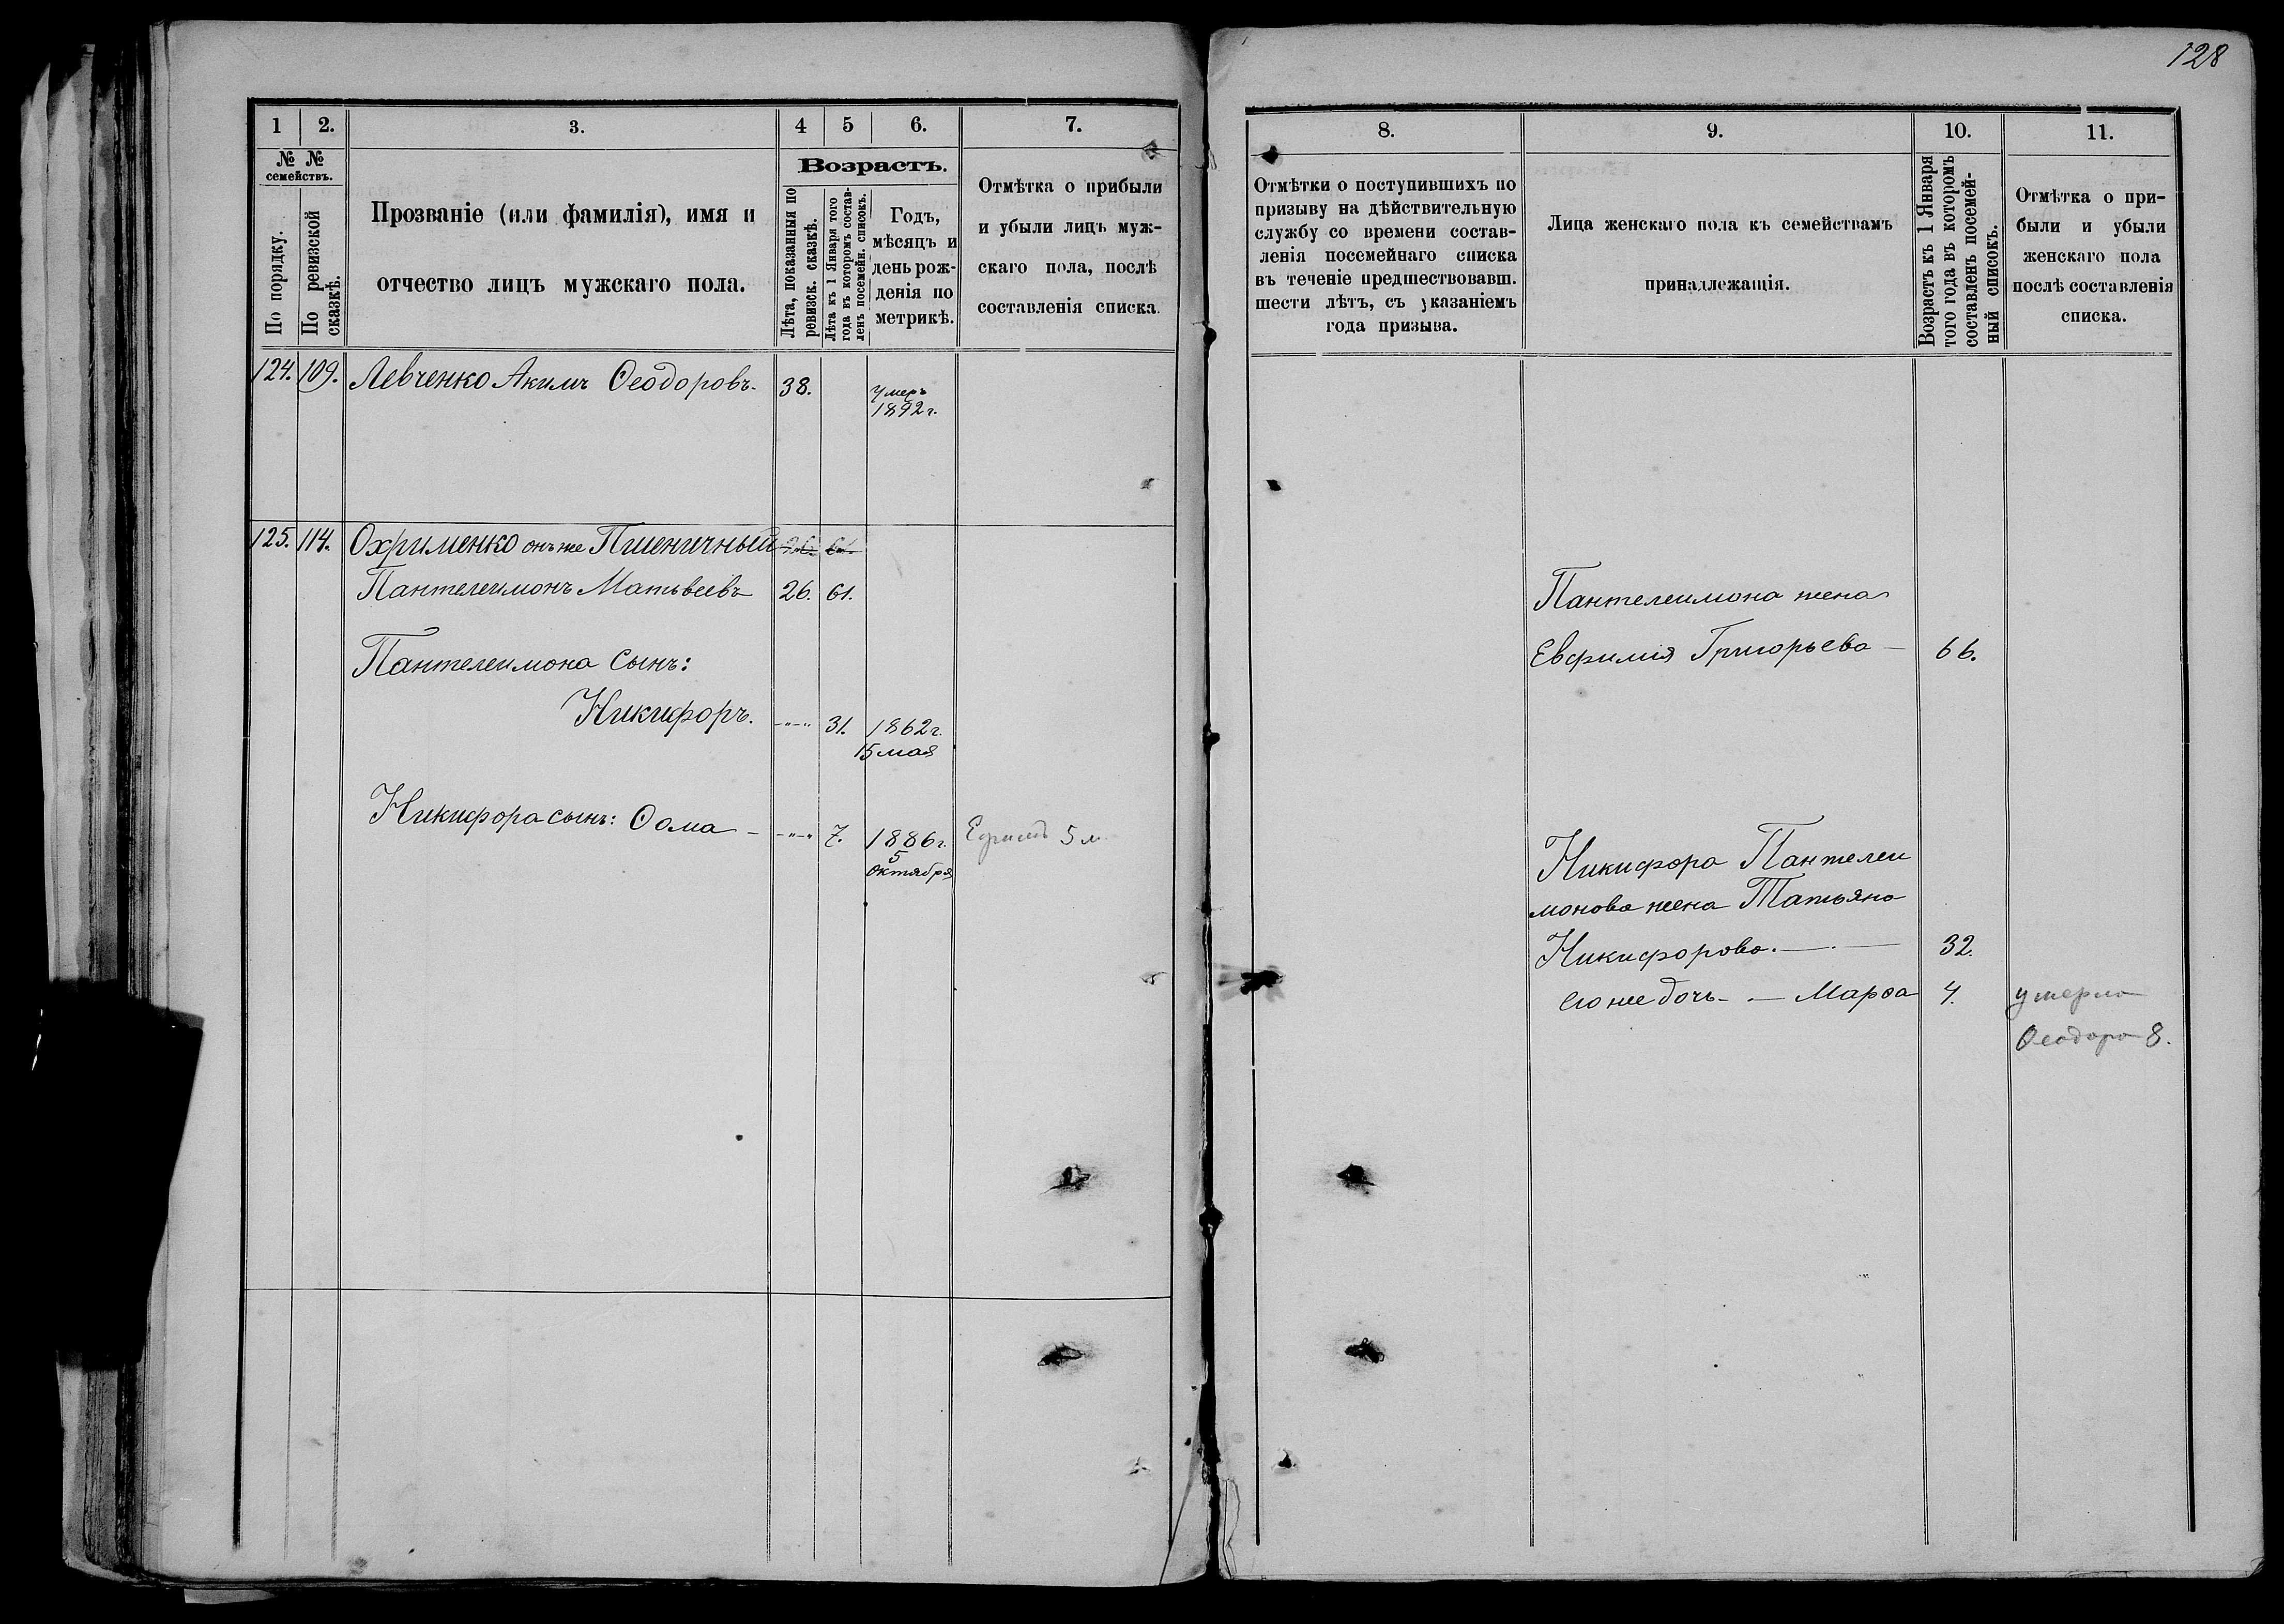 128
1 2. 3. 4 5 6. 7.
№ № семействъ.
По порядку.
По ревизской сказкѣ.
Прозваніе (или фамилія), имя и
отчество лицъ мужскаго пола.
Возрастъ.
Лѣта, показанныя по
ревизск. сказкѣ.
Лѣта къ 1 Января того
года въ которомъ состав-
ленъ посемейн. списокъ.
Годъ,
мѣсяцъ и
день рож-
денія по
метрикѣ.
Отмѣтка о прибыли
и убыли лицъ муж-
скаго пола, послѣ
составленія списка.
124. 109. Левченко Акимъ Ѳеодоровъ. 38.
умеръ
1892 г.
125. 114. Охрименко онъ же Пшеничный 26. 61.
Пантелеимонъ Матвеевъ 26. 61.
Пантелеимона сынъ:
Никифоръ. -"-" 31. 1862 г.
15 мая
Никифора сынъ: Ѳома - -"-" 7. 1886 г. Ефимъ 5 м
5
октября
8. 9. 10. 11.
Отмѣтки о поступившихъ по
призыву на дѣйствительную
службу со времени состав-
ленія посемейнаго списка
въ теченіе предшествовавш.
шести лѣтъ, съ указаніемъ
года призыва.
Лица женскаго пола къ семействамъ
принадлежащія.
Возрастъ къ 1 Января
того года въ которомъ
составленъ посемей-
ный списокъ.
Отмѣтка о при-
были и убыли
женскаго пола
послѣ составленія
списка.
Пантелеимона жена
Евфимія Григорьева — 66.
Никифора Пантелеи
монова жена Татьяна
Никифорова. — 32.
его же дочь - — Марѳа 4. умерла
Ѳеодора 8.